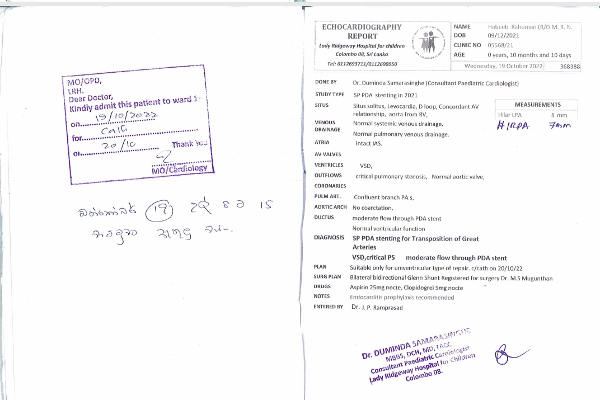 MO/OPD,
LRH.
Dear Doctor,
Kindly admit this patient to ward 1-
on 19/10/2022
for Cath
on 20/10 Thank You
MO/Cardiology
19
ECHOCARDIOGRAPHY
REPORT
Lady Ridgeway Hospital for children
Colombo 08, Sri Lanka
Tel: 0112693711/0112698850
NAME Habeeb Rahuman (B/O M. R. N.
DOB 09/12/2021
CLINIC NO 05568/21
AGE 0 years, 10 months and 10 days
Wednesday, 19 October 2022 368388
DONE BY Dr. Duminda Samarasinghe (Consultant Paediatric Cardiologist)
STUDY TYPE SP PDA stenting in 2021
SITUS Situs solitus, Levocardia, D loop, Concordant AV
relationship, aorta from RV,
VENOUS DRAINAGE Normal systemic venous drainage.
Normal pulmonary venous drainage.
ATRIA Intact IAS.
AV VALVES
VENTRICLES VSD,
OUTFLOWS critical pulmonary stenosis, Normal aortic valve,
CORONARIES
PULM ART. Confluent branch PA s,
AORTIC ARCH No coarctation,
DUCTUS moderate flow through PDA stent
Normal ventricular function
DIAGNOSIS SP PDA stenting for Transposition of Great
Arteries
VSD,critical PS moderate flow through PDA stent
PLAN Suitable only for univentricular type of repair. c/cath on 20/10/22
SURG PLAN Bilateral bidirectional Glenn Shunt Registered for surgery Dr. M.S Mugunthan
DRUGS Aspirin 25mg nocte, Clopidogrel 3mg nocte
NOTES Endocarditis prophylaxis recommended
ENTERED BY Dr. J. P. Ramprasad
MEASUREMENTS
Hilar LPA 8 mm
H/RPA 7mm
Dr. DUMINDA SAMARASINGHE
MBBS, DCH, MD, FACC
Consultant Paediatric Cardiologist
Lady Ridgeway Hospital for Children
Colombo 08.